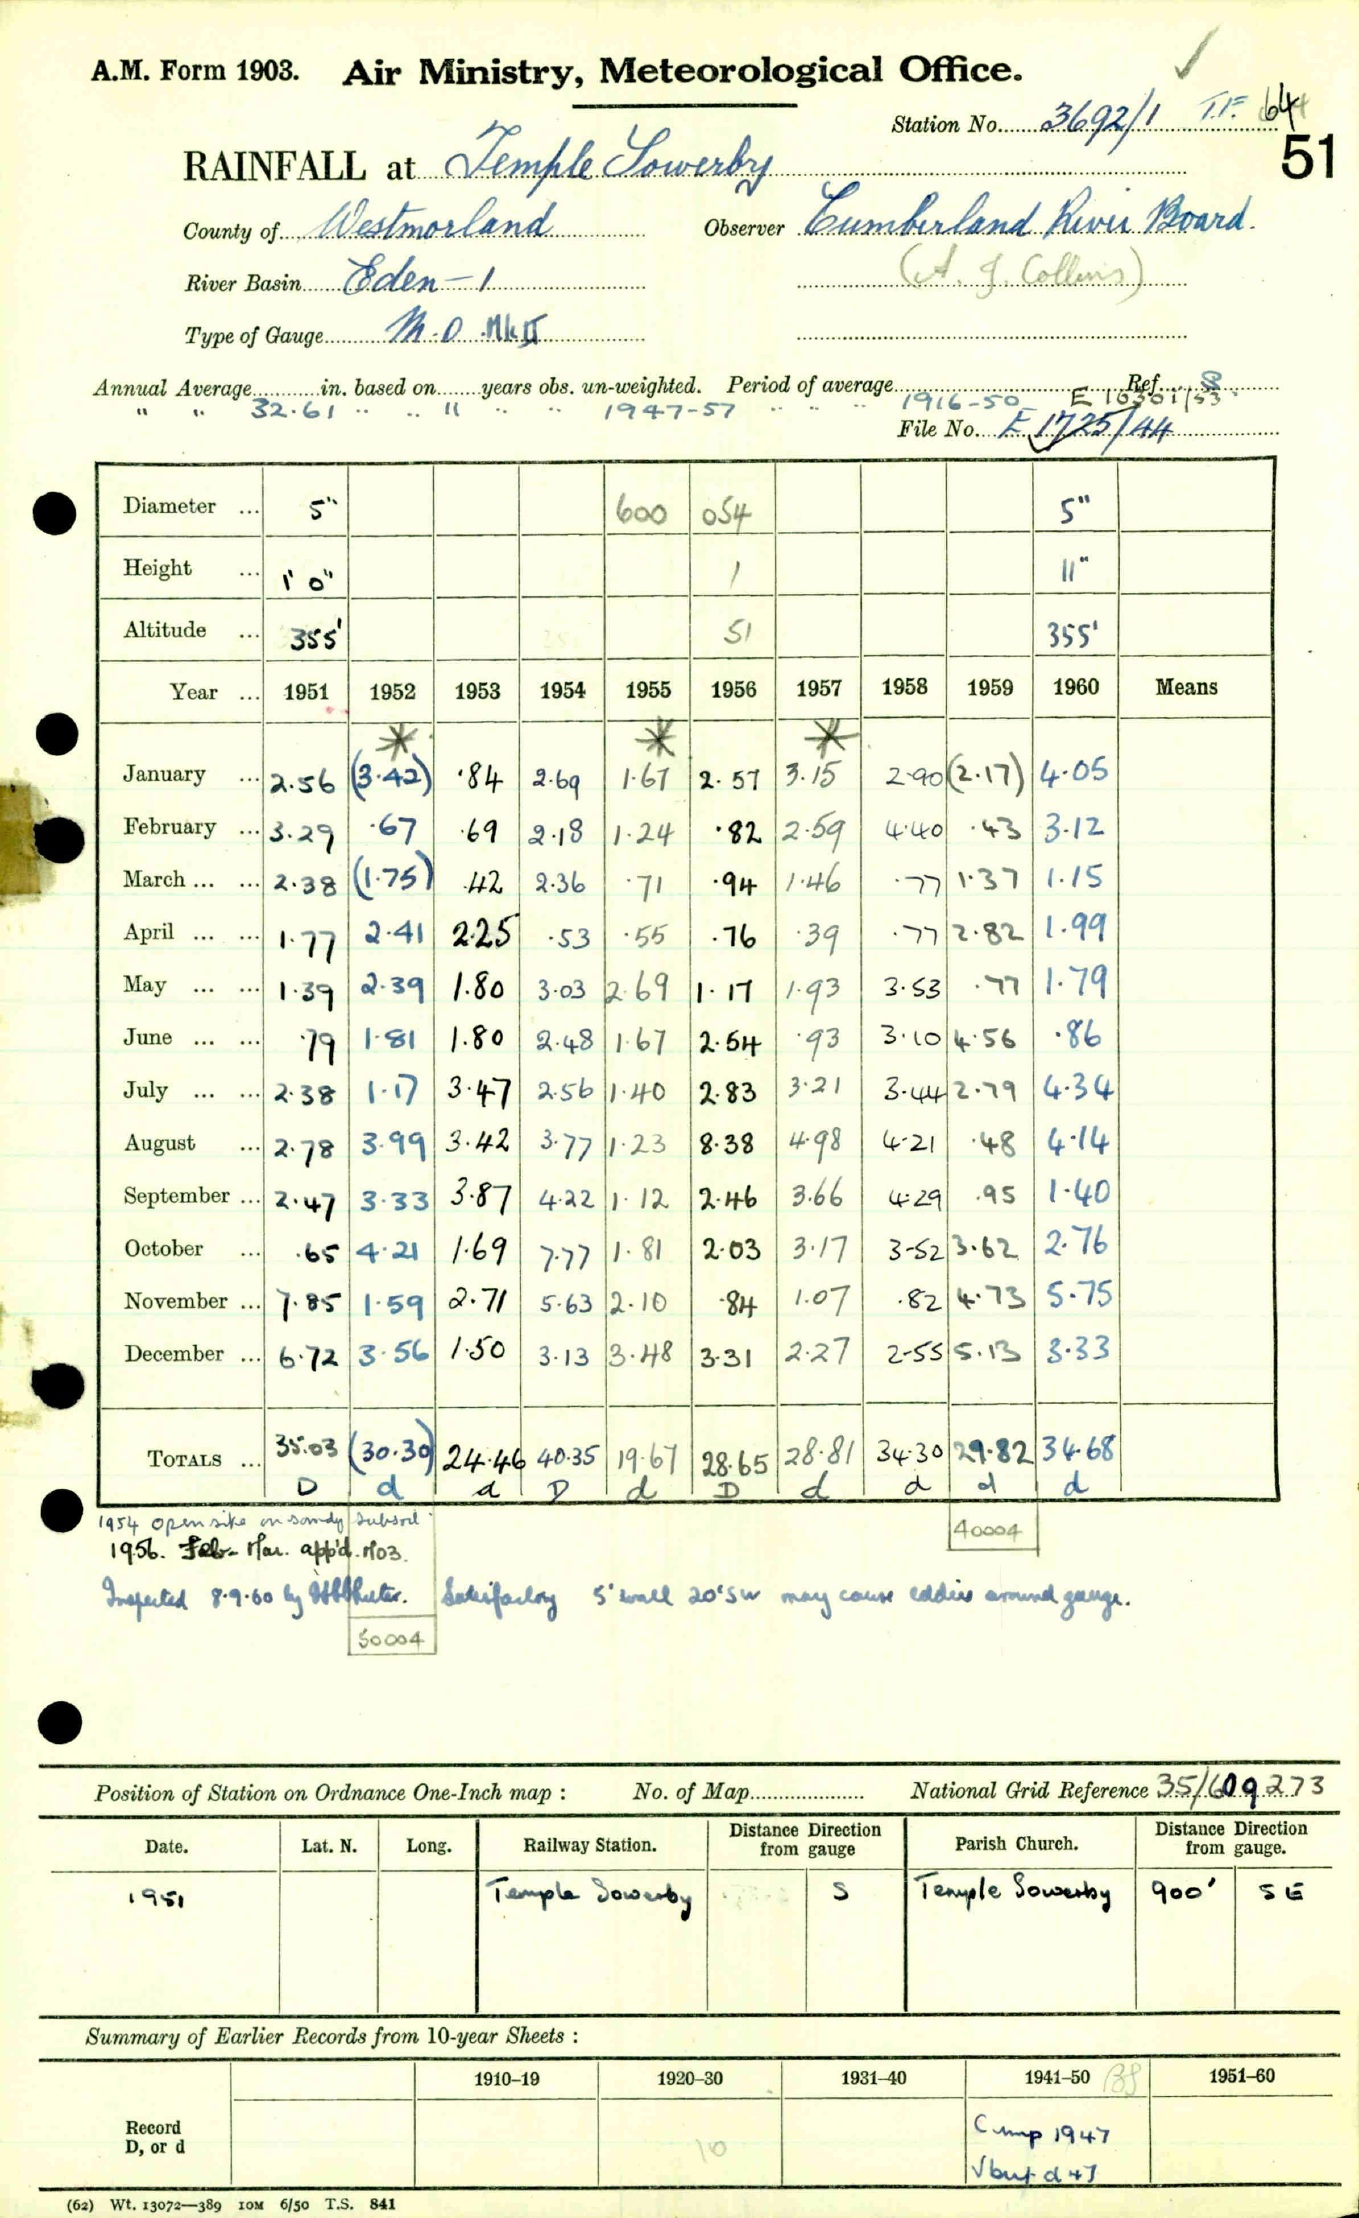 A.M. Form 1903. Air Ministry, Meteorological Office.
Station No. 3692/1 T.F. 64
51
RAINFALL at Temple Sowerby
County of Westmorland Observer Cumberland River Board.
(A. J. Collins)
River Basin Eden - 1
Type of Gauge M.O. Mk II
Annual Average in. based on years obs. un-weighted. Period of average Ref. S
" " 32.61 " " 11 " " 1947-57 " " " 1916-50 E 16301/53
File No. E 1725/44
Diameter ... 5" 600 054 5"
Height ... 1' 0" 1 11"
Altitude ... 355' 51 355'
Year ... 1951 1952 1953 1954 1955 1956 1957 1958 1959 1960 Means
* * *
January ... 2.56 (3.42) .84 2.69 1.67 2.57 3.15 2.90 (2.17) 4.05
February ... 3.29 .67 .69 2.18 1.24 .82 2.59 4.40 .43 3.12
March ... ... 2.38 (1.75) .42 2.36 .71 .94 1.46 .77 1.37 1.15
April ... ... 1.77 2.41 2.25 .53 .55 .76 .39 .77 2.82 1.99
May ... ... 1.39 2.39 1.80 3.03 2.69 1.17 1.93 3.53 .77 1.79
June ... ... .79 1.81 1.80 2.48 1.67 2.54 .93 3.10 4.56 .86
July ... ... 2.38 1.17 3.47 2.56 1.40 2.83 3.21 3.44 2.79 4.34
August ... 2.78 3.99 3.42 3.77 1.23 8.38 4.98 4.21 .48 4.14
September ... 2.47 3.33 3.87 4.22 1.12 2.46 3.66 4.29 .95 1.40
October ... .65 4.21 1.69 7.77 1.81 2.03 3.17 3.52 3.62 2.76
November ... 7.85 1.59 2.71 5.63 2.10 .84 1.07 .82 4.73 5.75
December ... 6.72 3.56 1.50 3.13 3.48 3.31 2.27 2.55 5.13 3.33
TOTALS ... 35.03 (30.30) 24.46 40.35 19.67 28.65 28.81 34.30 29.82 34.68
D d d D d D d d d d
1954 Open site on sandy subsoil
40004
1956. Feb- Mar. app'd. M03.
Inspected 8.9.60 by Satisfactory 5' wall 20' SW may cause eddies around gauge.
50004
Position of Station on Ordnance One-Inch map : No. of Map National Grid Reference 35/609273
Date. Lat. N. Long. Railway Station. Distance Direction from gauge Parish Church. Distance Direction from gauge.
1951 Temple Sowerby S Temple Sowerby 900' SE
Summary of Earlier Records from 10-year Sheets :
1910-19 1920-30 1931-40 1941-50 1951-60
Record
D, or d
10
Comp 1947
√ but d 47
(62) Wt. 13072—389 10M 6/50 T.S. 841